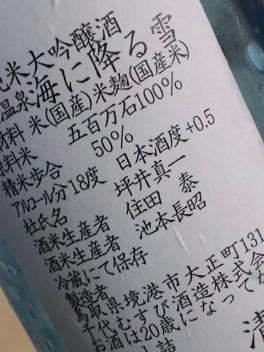 純米大吟醸酒
海に降る雪
温泉
材料 米(国産)米麹(国産米)
原料米 五百万石100%
精米歩合 50%
アルコール分18度 日本酒度+0.5
杜氏名 坪井真一
酒米生産者 住田 泰
酒米生産者 池本長昭
冷蔵にて保存
製造者
鳥取県境港市大正町131
千代むすび酒造株式会
お酒は20歳になってか
詰
清